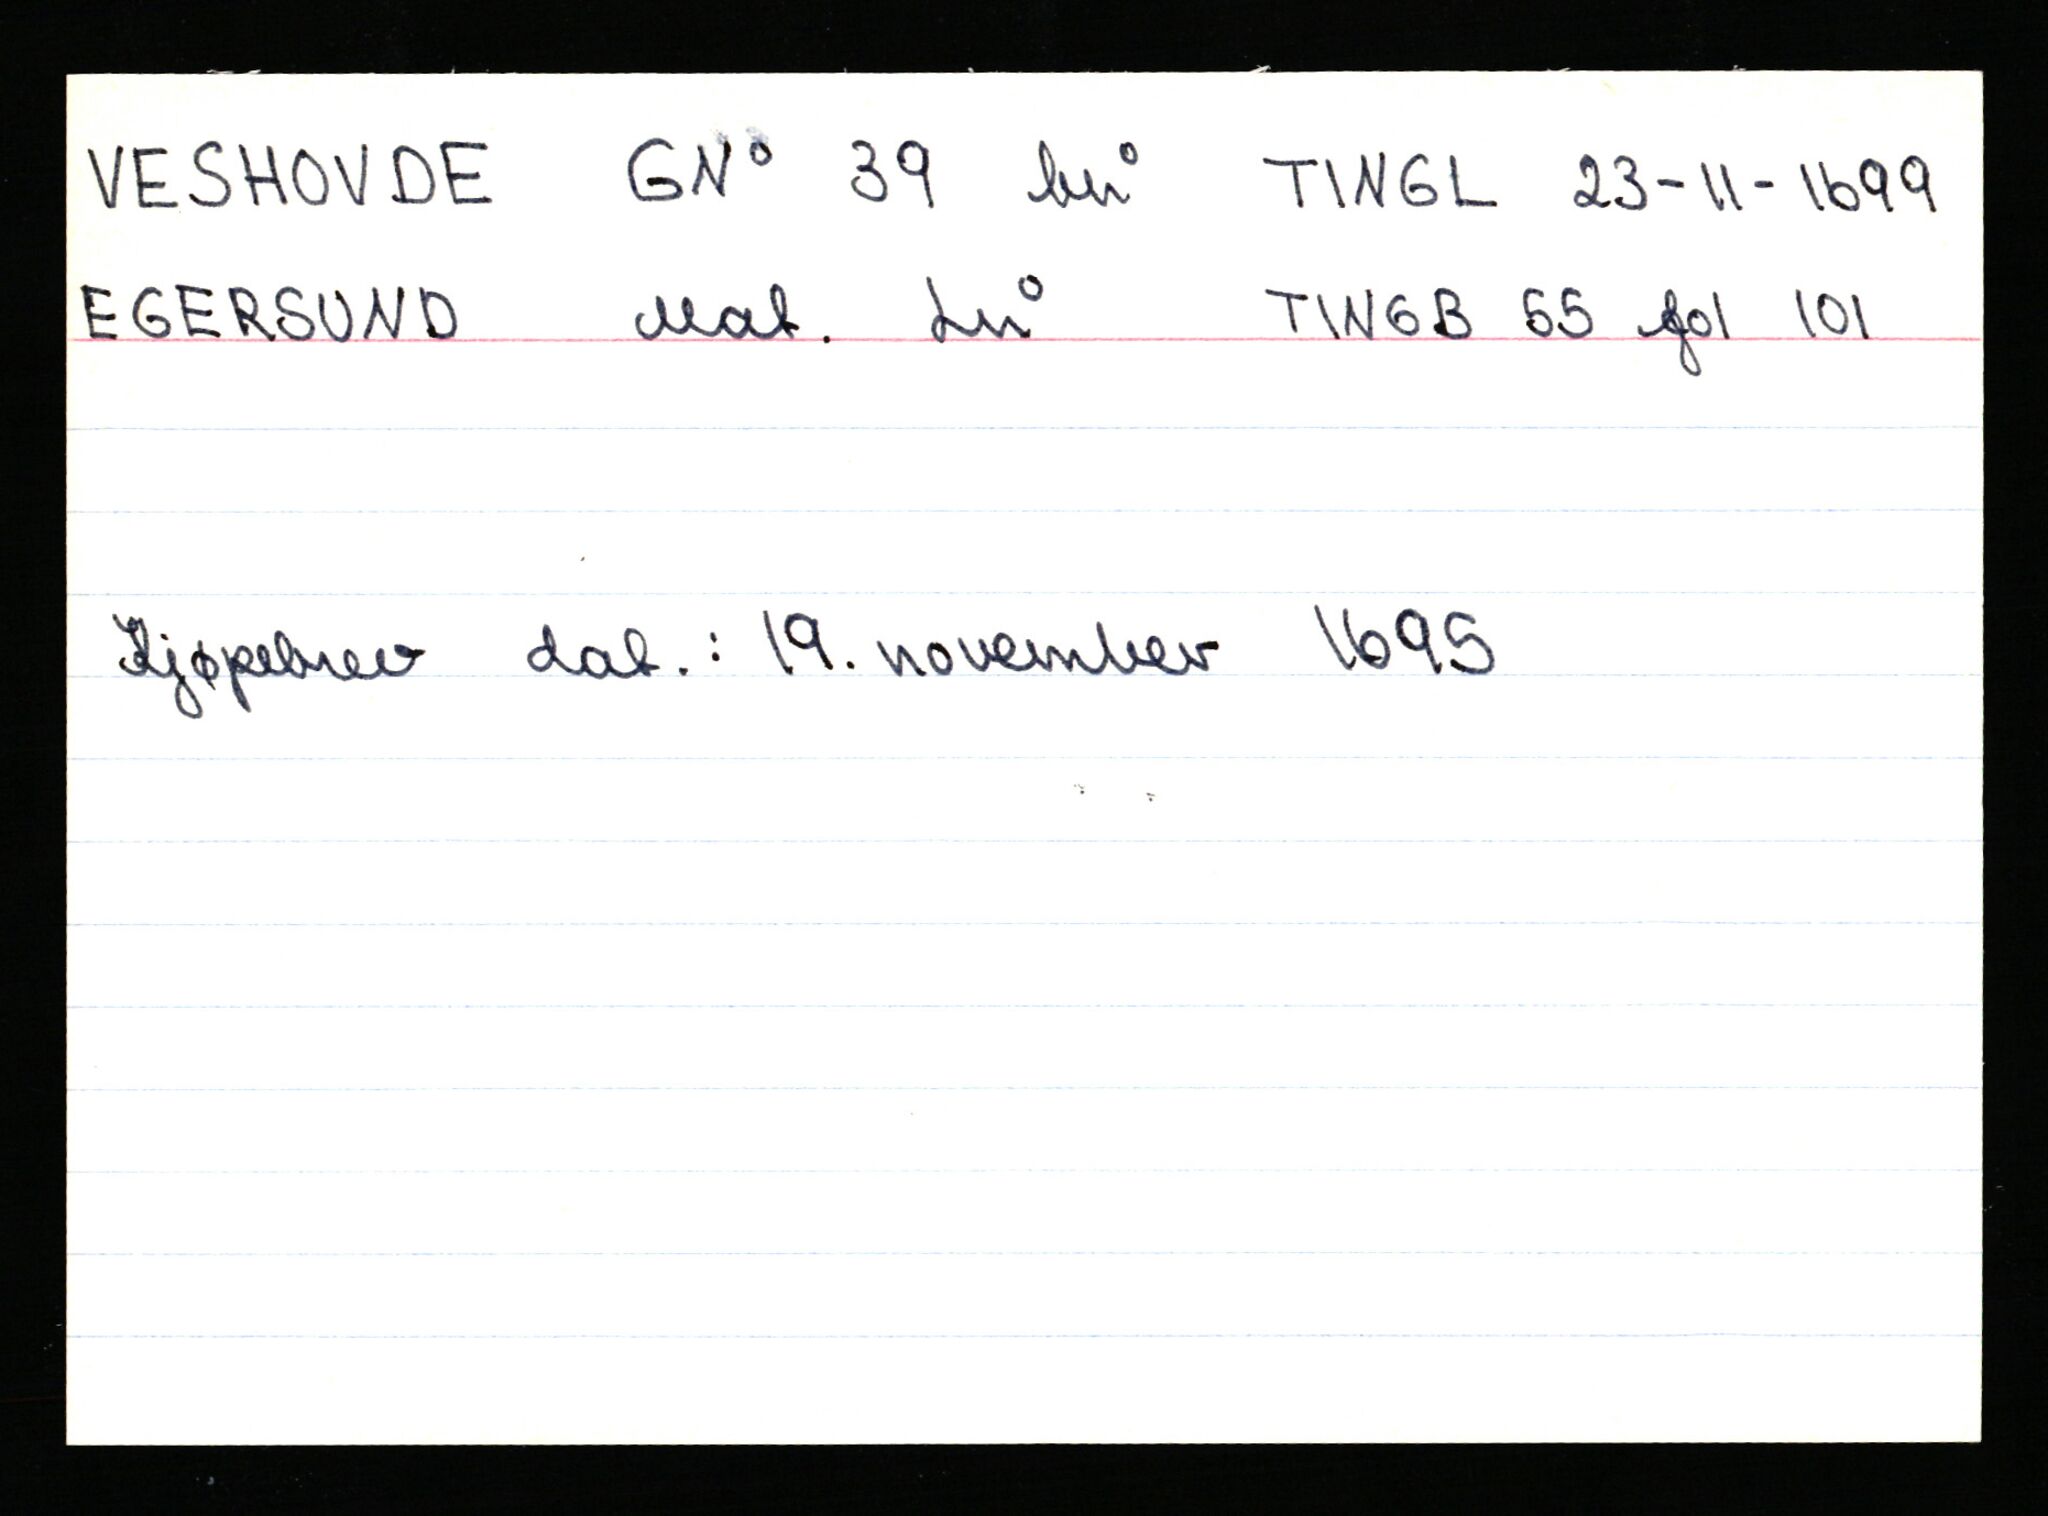 VESHOVDE GN° 39 bn° TINGL 23-11-1699
EGERSUND Mat. Ln° TINGB 55 fol 101
Kjøpebrev dat.: 19. november 1695